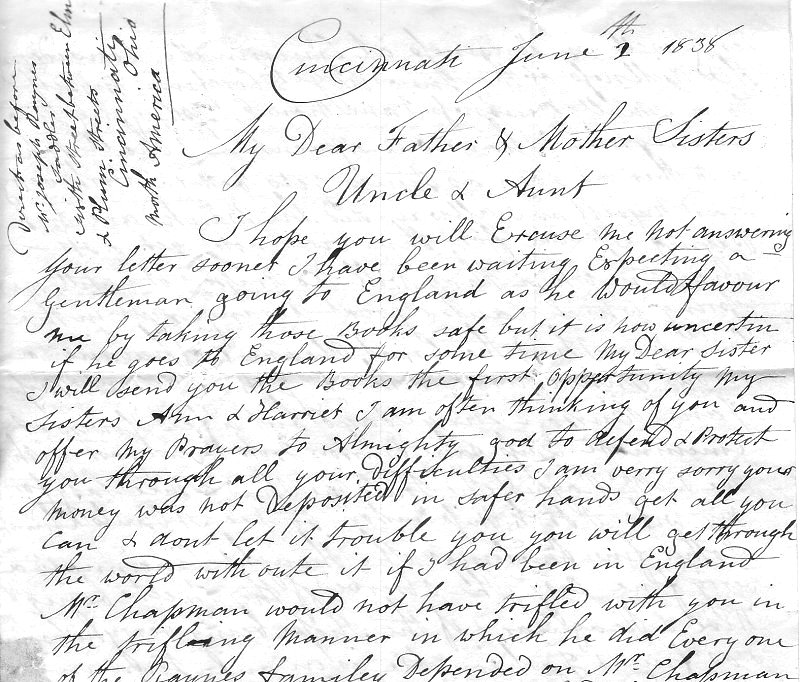 Cincinnati June 1th 1838
My Dear Father & Mother Sisters
Uncle & Aunt
I hope you will Excuse me not answering
your letter sooner I have been waiting Expecting a
Gentleman going to England as he Would favour
me by taking those Books safe but it is now uncertin
if he goes to England for some time My Dear Sister
I will send you the Books the first opportunity my
Sisters Ann & Harriet I am often thinking of you and
offer my Prayers to Almighty god to defend & Protect
you through all your Difficulties I am verry sorry your
money was not Deposited in safer hands get all you
Can & dont let it trouble you you will get through
the world with oute it if I had been in England
Mr. Chapman would not have trifled with you in
the trifling Manner in which he did Every one
of the Raynes familey Depended on Mr. Chapman
Direct as before
Mr Joseph Raynes
Saddler
sixth Street between Elm
& Plum Streets
Cincinnati
Ohio
North America